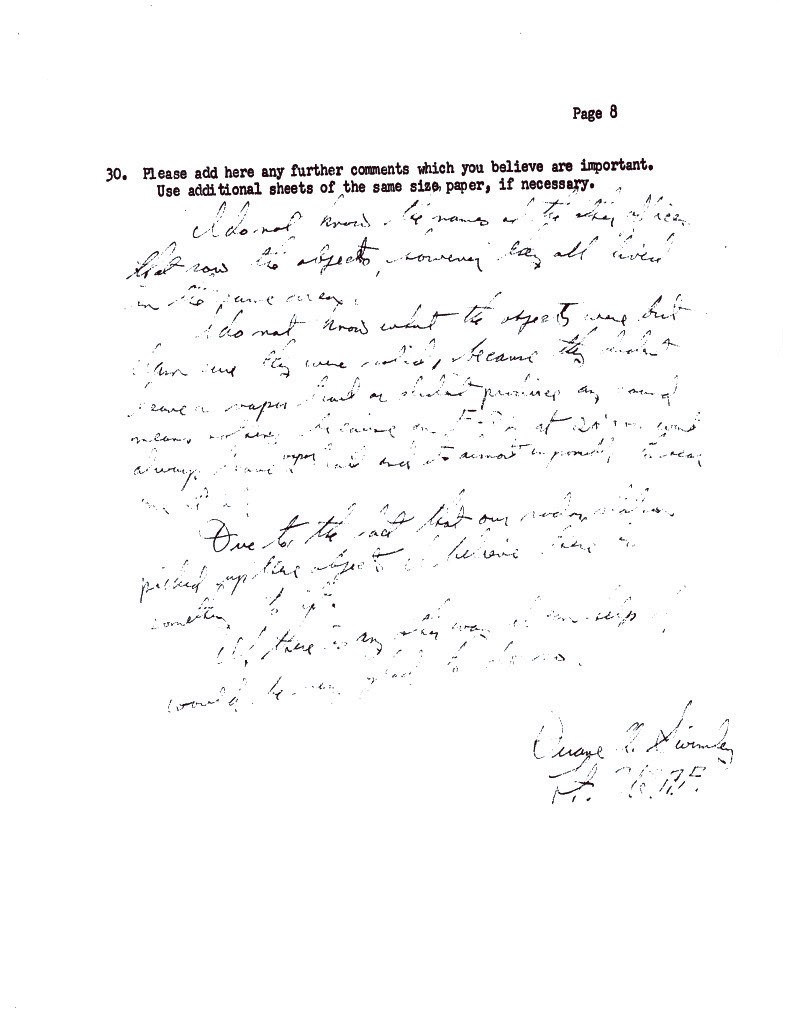 Page 8
30. Please add here any further comments which you believe are important.
Use additional sheets of the same size paper, if necessary.
I do not know the names of the other officers
that saw the objects, however they all lived
in the same area.
I do not know what the objects were but
I am sure they were solid, because they didn't
leave a vapor trail or didn't produce any sound
means nothing because an at 20
always leave vapor trail and its almost impossible to hear
Due to the fact that our radar stations
picked up these objects I believe there is
something to it.
If there is any other way I can help I
would be very glad to do so.
Duane
Lt. USAF